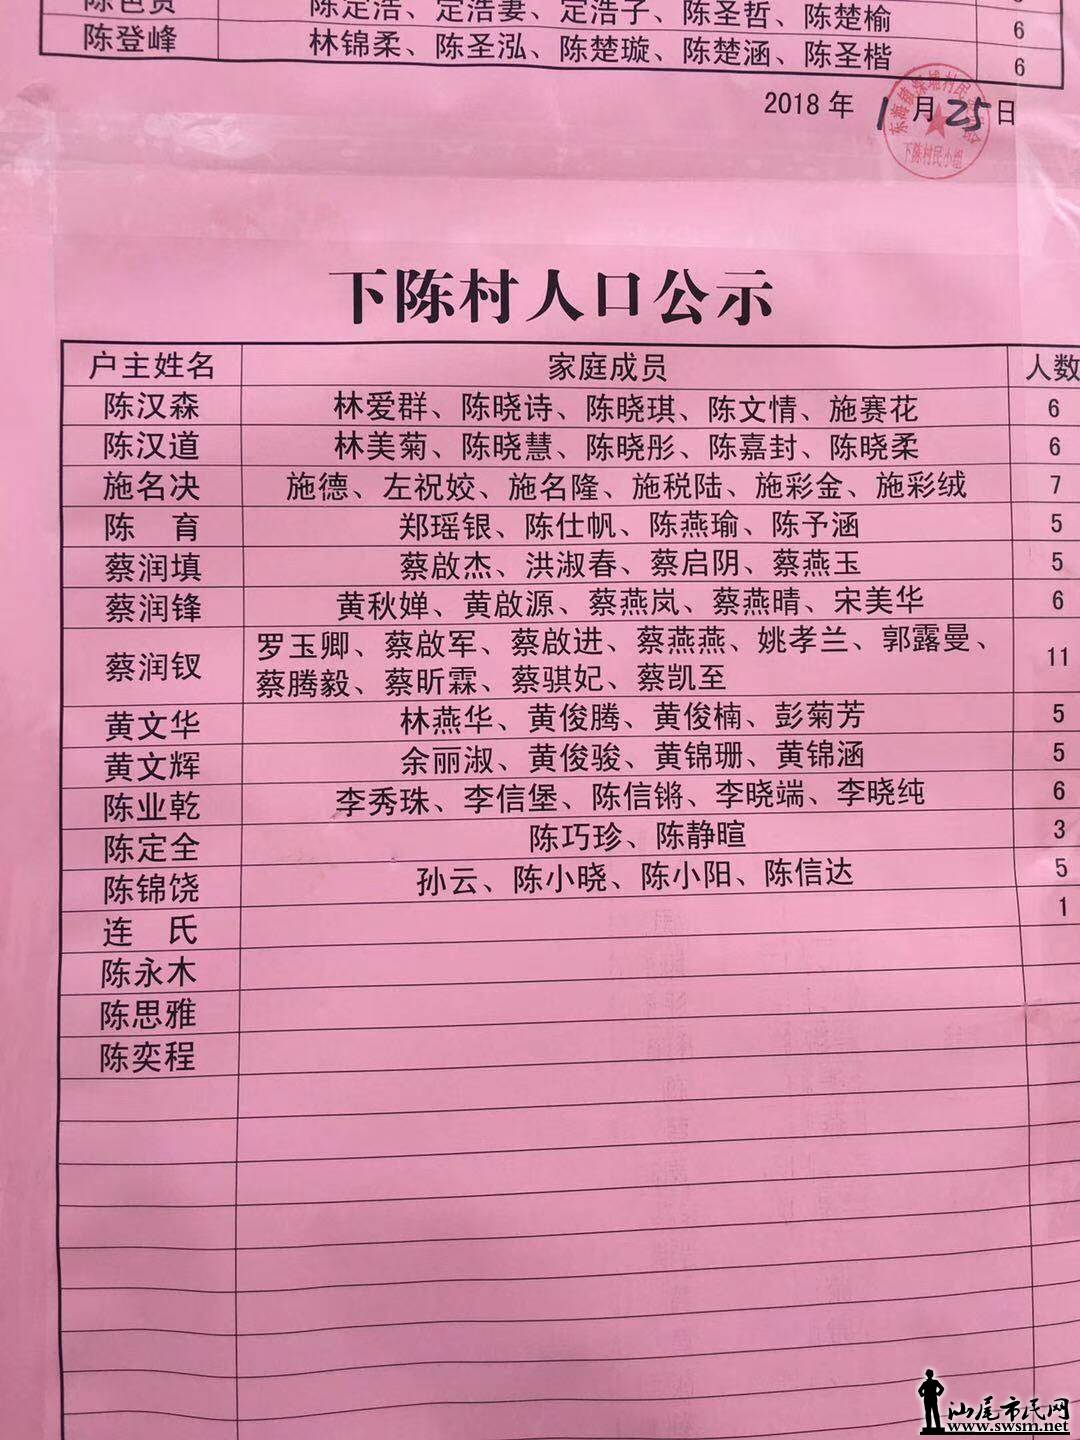 陈色贤 陈定浩、定浩妻、定浩子、陈圣哲、陈楚榆 6
陈登峰 林锦柔、陈圣泓、陈楚璇、陈楚涵、陈圣楷 6
2018 年 1 月 25 日
下陈村民小组
下陈村人口公示
户主姓名 家庭成员 人数
陈汉森 林爱群、陈晓诗、陈晓琪、陈文情、施赛花 6
陈汉道 林美菊、陈晓慧、陈晓彤、陈嘉封、陈晓柔 6
施名决 施德、左祝姣、施名隆、施税陆、施彩金、施彩绒 7
陈 育 郑瑶银、陈仕帆、陈燕瑜、陈予涵 5
蔡润填 蔡啟杰、洪淑春、蔡启阴、蔡燕玉 5
蔡润锋 黄秋婵、黄啟源、蔡燕岚、蔡燕晴、宋美华 6
蔡润钗 罗玉卿、蔡啟军、蔡啟进、蔡燕燕、姚孝兰、郭露曼、 11
蔡腾毅、蔡昕霖、蔡骐妃、蔡凯至
黄文华 林燕华、黄俊腾、黄俊楠、彭菊芳 5
黄文辉 余丽淑、黄俊骏、黄锦珊、黄锦涵 5
陈业乾 李秀珠、李信堡、陈信锵、李晓端、李晓纯 6
陈定全 陈巧珍、陈静暄 3
陈锦饶 孙云、陈小晓、陈小阳、陈信达 5
连 氏 1
陈永木
陈思雅
陈奕程
汕尾市民网
www.swsm.net